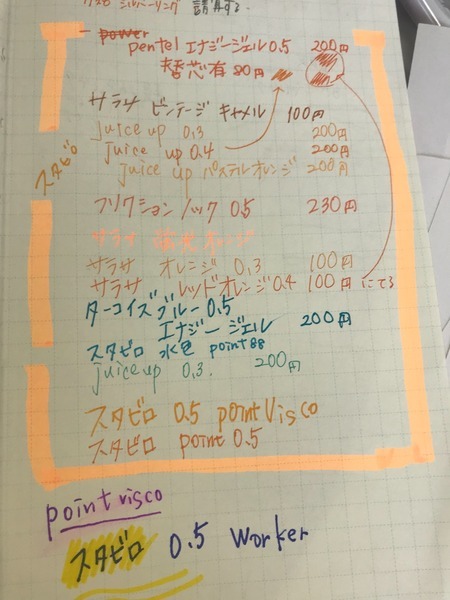 シルバーリング 請求する.
- power
pentel エナジージェル 0.5 200円
替芯有 80円
サラサ ビンテージ キャメル 100円
juice up 0.3 200円
juice up 0.4 200円
juice up パステルオレンジ 200円
スタビロ
フリクション ノック 0.5 230円
サラサ 蛍光オレンジ
サラサ オレンジ 0.3 100円
サラサ レッドオレンジ 0.4 100円 にてる
ターコイズブルー 0.5
エナジー ジェル 200円
スタビロ 水色 point 88
juice up 0.3. 200円
スタビロ 0.5 pointVisco
スタビロ point 0.5
point visco
スタビロ 0.5 worker